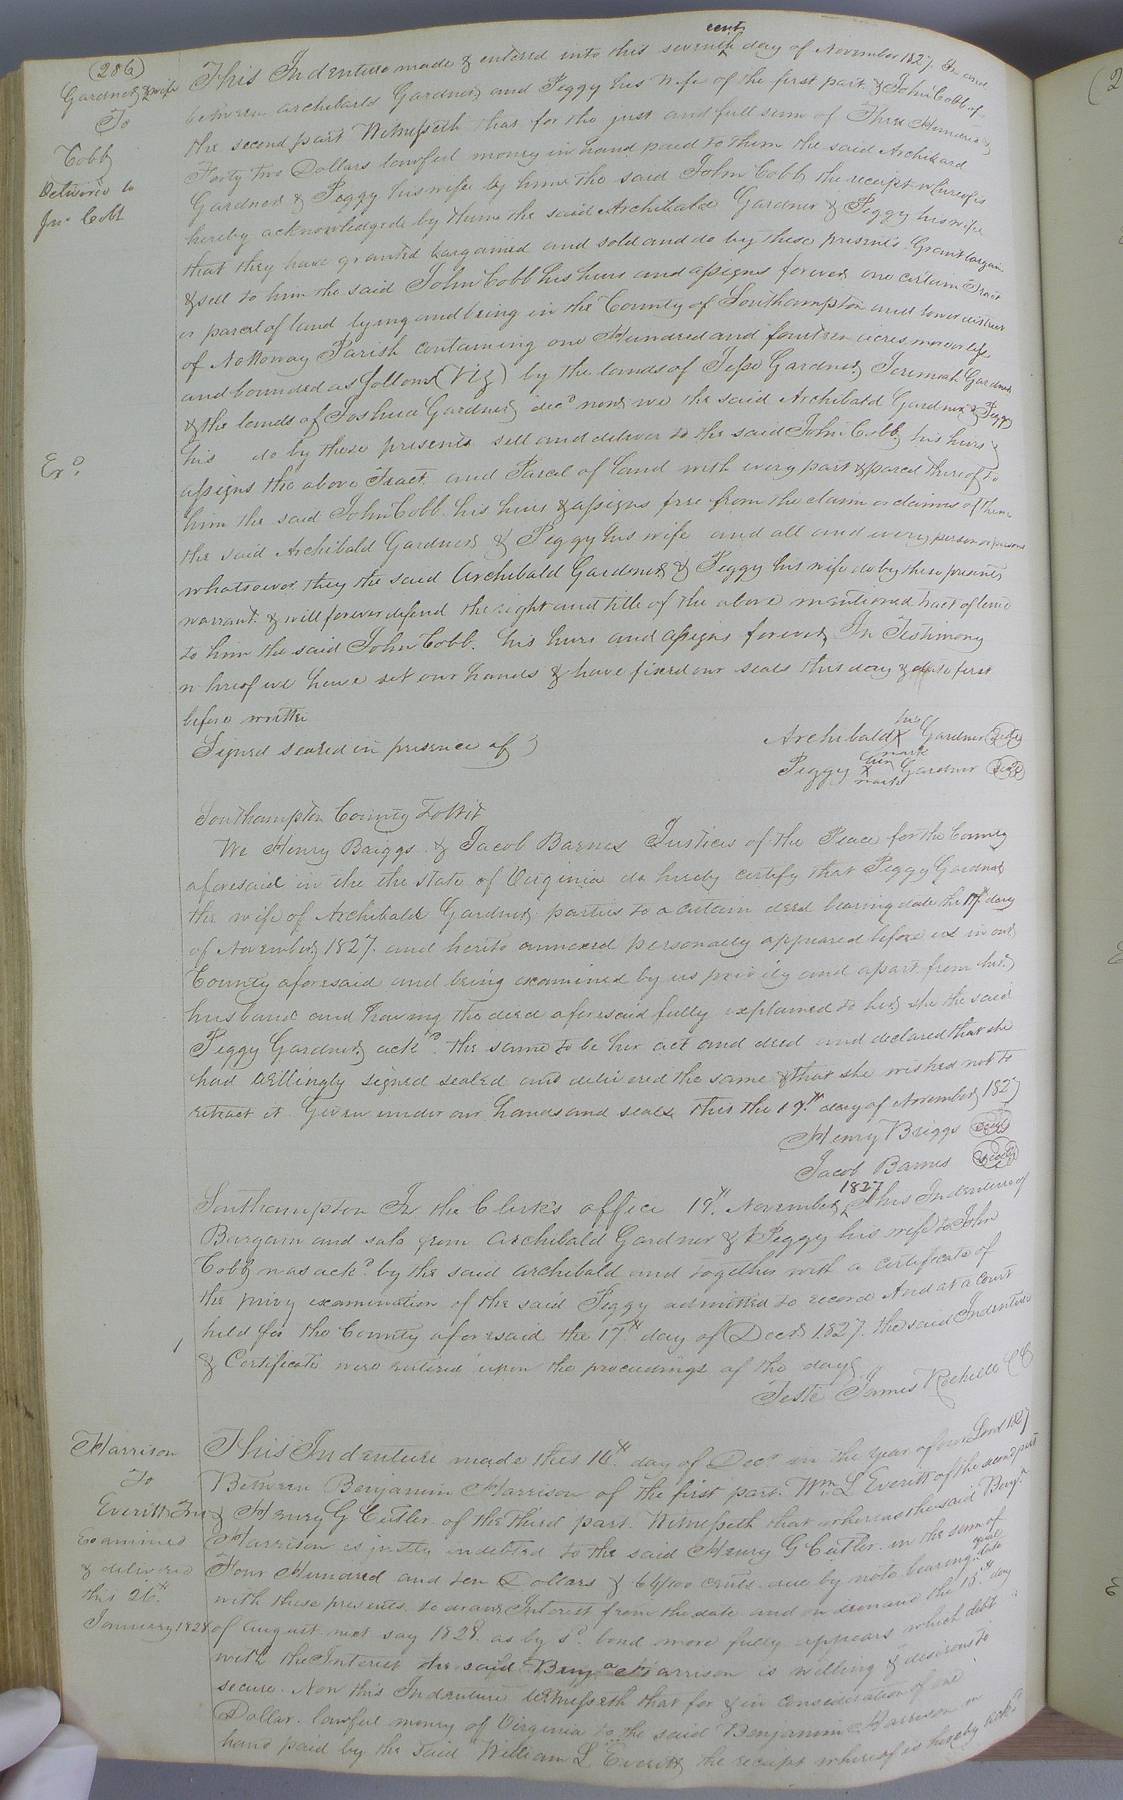 (286)
Gardner & wife
To
Cobb
Delivered to
Jno. Cobb
Exd.
This Indenture made & entered into this seventh day of November 1827
between Archibald Gardner and Peggy his wife of the first part & John Cobb of
the second part Witnesseth that for the just and full sum of Three Hundred &
Forty two Dollars lawful money in hand paid to them the said Archibard
Gardner & Peggy his wife by him the said John Cobb the receipt whereof is
hereby acknowledged by them the said Archibald Gardner & Peggy his wife
that they have granted bargained and sold and do by these presents Grant bargain
& sell to him the said John Cobb his heirs and assigns forever one certain Tract
or parcel of land lying and being in the County of Southampton and lower district
of Nottoway Parish containing one Hundred and fourteen acres more or less
and bounded as follows (Viz) by the lands of Jesse Gardner, Jeremiah Gardner
& the lands of Joshua Gardner decd. now we the said Archibald Gardner & Peggy
his do by these presents sell and deliver to the said John Cobb his heirs &
assigns the above Tract and Parcel of land with every part & parcel thereof to
him the said John Cobb his heirs & assigns free from the claim or claimes of them
the said Archibald Gardner & Peggy his wife and all and every person or persons
whatsoever they the said Archibald Gardner & Peggy his wife do by these presents
warrant & will forever defend the right and title of the above mentioned tract of land
to him the said John Cobb. his heirs and assigns forever In Testimony
whereof we have set our hands & have fixed our seals this day & date first
before writte
Signed sealed in presence of }
Archibald his X mark Gardner (Seal)
Peggy her X mark Gardner (Seal)
Southampton County To Wit
We Henry Briggs & Jacob Barnes Justices of the Peace for the County
aforesaid in the the State of Virginia do hereby certify that Peggy Gardner
the wife of Archibald Gardner parties to a certain deed bearing date the 17th day
of November 1827 and hereto annexed personally appeared before us in our
County aforesaid and being examined by us privily and apart from her
husband and having the deed aforesaid fully explained to her she the said
Peggy Gardner ackd. the same to be her act and deed and declared that she
had willingly signed sealed and delivered the same & that she wished not to
retract it Given under our hands and seals this the 17th day of November 1827
Henry Briggs (Seal)
Jacob Barnes (Seal)
Southampton In the Clerk's office 17th November 1827 This Indenture of
Bargain and sale from Archibald Gardner & Peggy his wife to John
Cobb was ackd. by the said Archibald and together with a certificate of
the privy examination of the said Peggy admitted to record And at a Court
held for the County aforesaid the 17th day of Decr 1827. the said Indenture
& Certificate were entered upon the proceedings of the day
Teste James Rochelle CC
Harrison
To
Everitt Tru
Examined
& delivered
this 26th
January 1828
This Indenture made this 16th day of Decr in the year of our Lord 1827
Between Benjamin Harrison of the first part. Wm. L Everitt of the second part
& Henry G Cutler of the third part. Witnesseth that whereas the said Benja.
Harrison is justly indebted to the said Henry G Cutler in the sum of
Four Hundred and ten Dollars & 66/100 cents due by note bearing even date
with these presents to draw Interest from the date and on demand the 15th day
of August next say 1828 as by sd. bond more fully appears which debt
with the Interest the said Benja Harrison is willing & desirous to
secure. Now this Indenture Witnesseth that for & in consideration of one
Dollar lawful money of Virginia to the said Benjamin Harrison in
hand paid by the said William L Everitt the receipt whereof is hereby ackd.